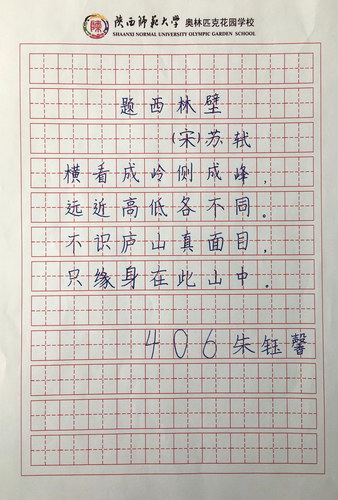 陕西师范大学 奥林匹克花园学校
SHAANXI NORMAL UNIVERSITY OLYMPIC GARDEN SCHOOL
题西林壁
(宋)苏轼
横看成岭侧成峰，
远近高低各不同。
不识庐山真面目，
只缘身在此山中。
406朱钰馨